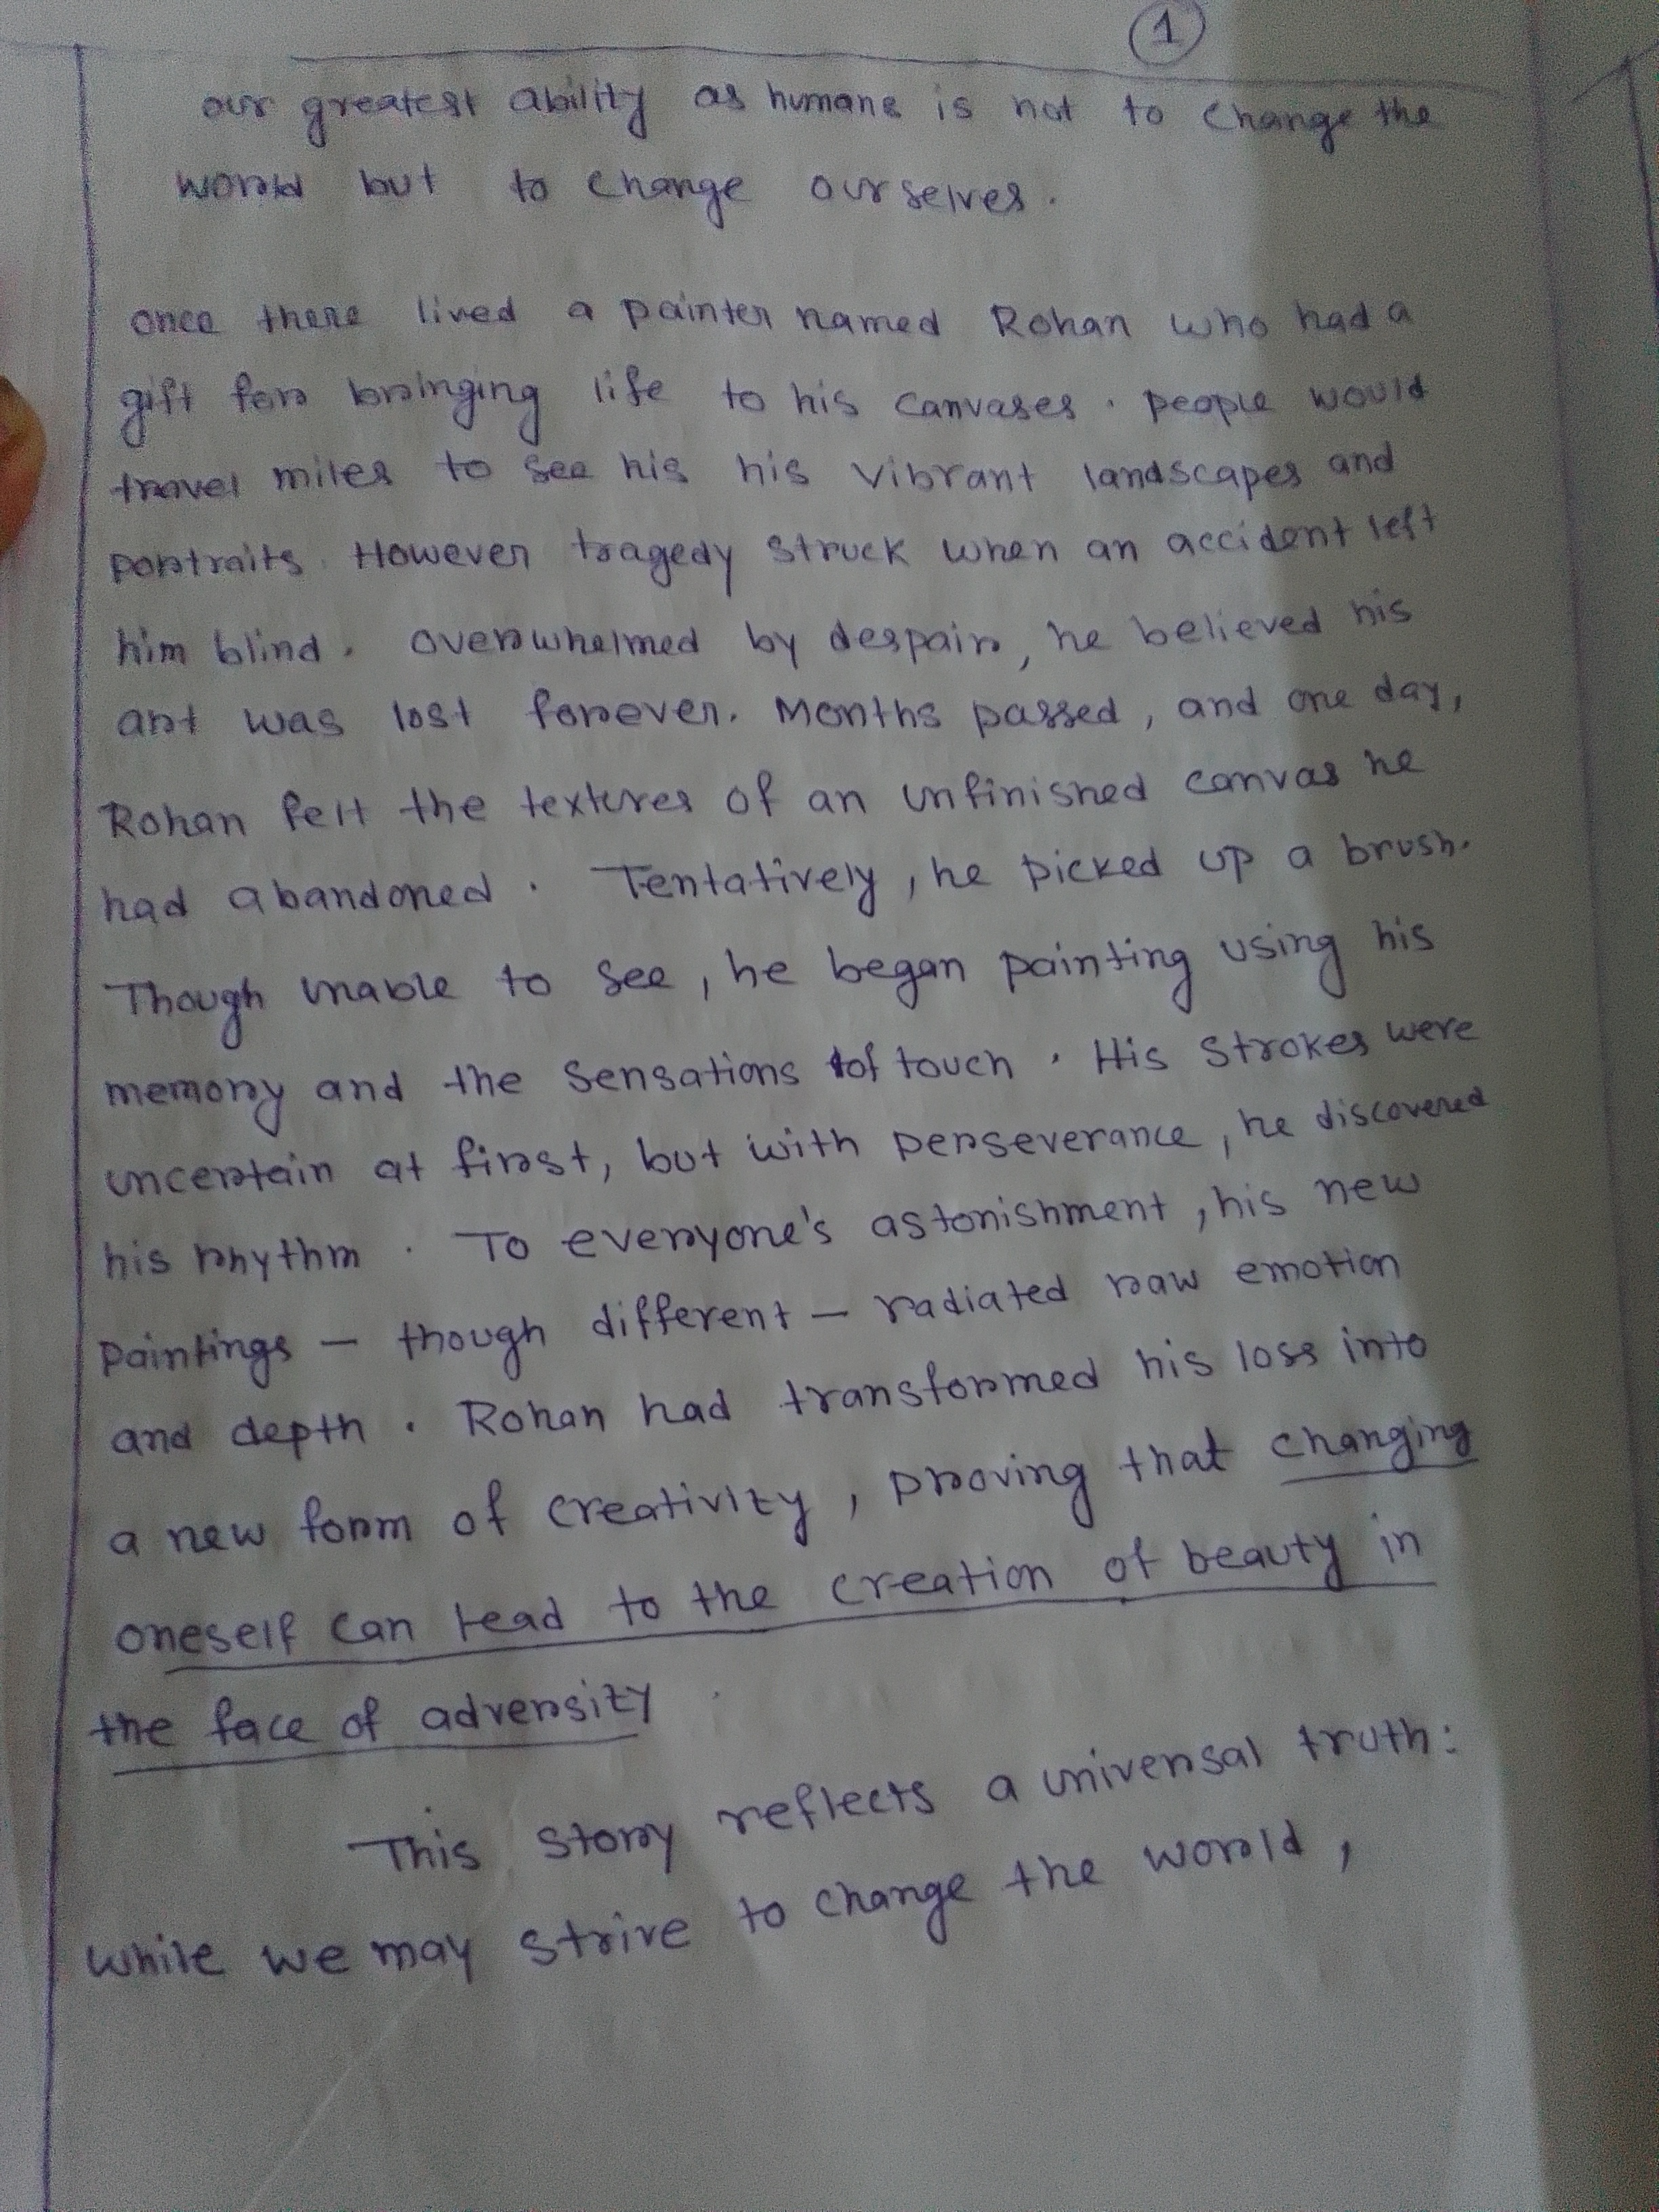 1
our greatest ability as humans is not to change the
world but to change ourselves.
once there lived a painter named Rohan who had a
gift for bringing life to his canvases. people would
travel miles to see his his vibrant landscapes and
portraits. However tragedy struck when an accident left
him blind. overwhelmed by despair, he believed his
art was lost forever. Months passed, and one day,
Rohan felt the textures of an unfinished canvas he
had abandoned. Tentatively, he picked up a brush.
Though unable to see, he began painting using his
memory and the sensations of touch. His strokes were
uncertain at first, but with perseverance, he discovered
his rhythm. To everyone's astonishment, his new
paintings – though different – radiated raw emotion
and depth. Rohan had transformed his loss into
a new form of creativity, proving that changing
oneself can lead to the creation of beauty in
the face of adversity.
This story reflects a universal truth:
while we may strive to change the world,